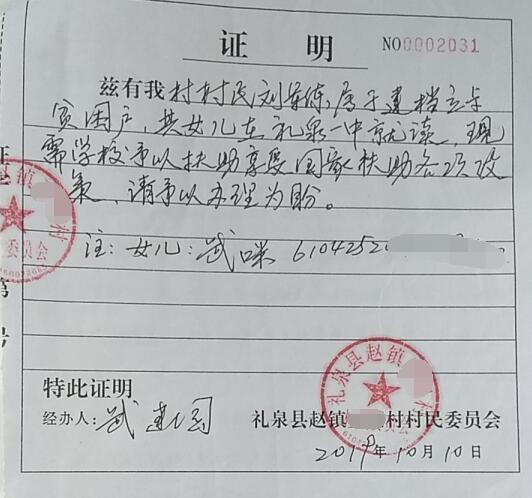 证 明
NO0002031
兹有我村村民刘军练,属于建档立卡
贫困户,其女儿在礼泉一中就读,现
需学校予以扶助享受国家扶助各项政
策,请予以办理为盼。
注:女儿:武咪 6104252
赵镇 村
委员会
第
号
特此证明
经办人:武
礼泉县赵镇 村村民委员会
礼泉县赵镇 村
2019年10月10日